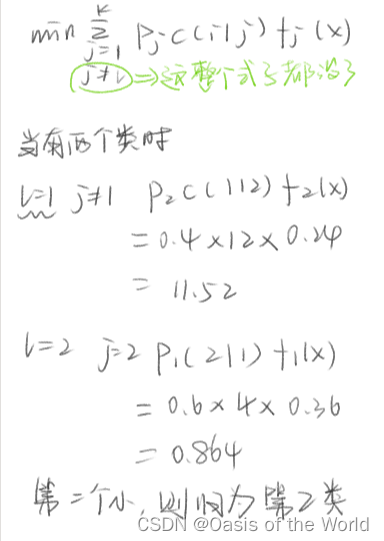 min K Σ j=1 Pj c(i|j) fj(x)
j≠i ⇒ 这整个式子都没了
当有两个类时
i=1 j≠1 P2 c(1|2) f2(x)
= 0.4 × 12 × 0.24
= 11.52
i=2 j=2 P1(2|1) f1(x)
= 0.6 × 4 × 0.36
= 0.864
第二个小,则归为第2类
CSDN @Oasis of the World